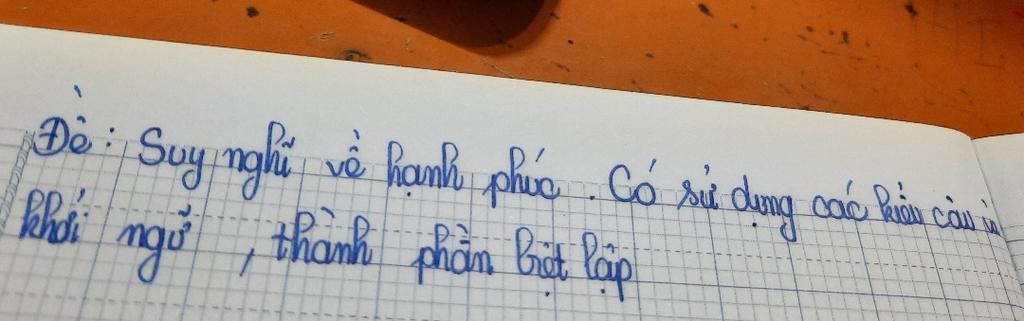 Đề: Suy nghĩ về hạnh phúc. Có sử dụng các kiểu câu
khởi ngữ, thành phần biệt lập